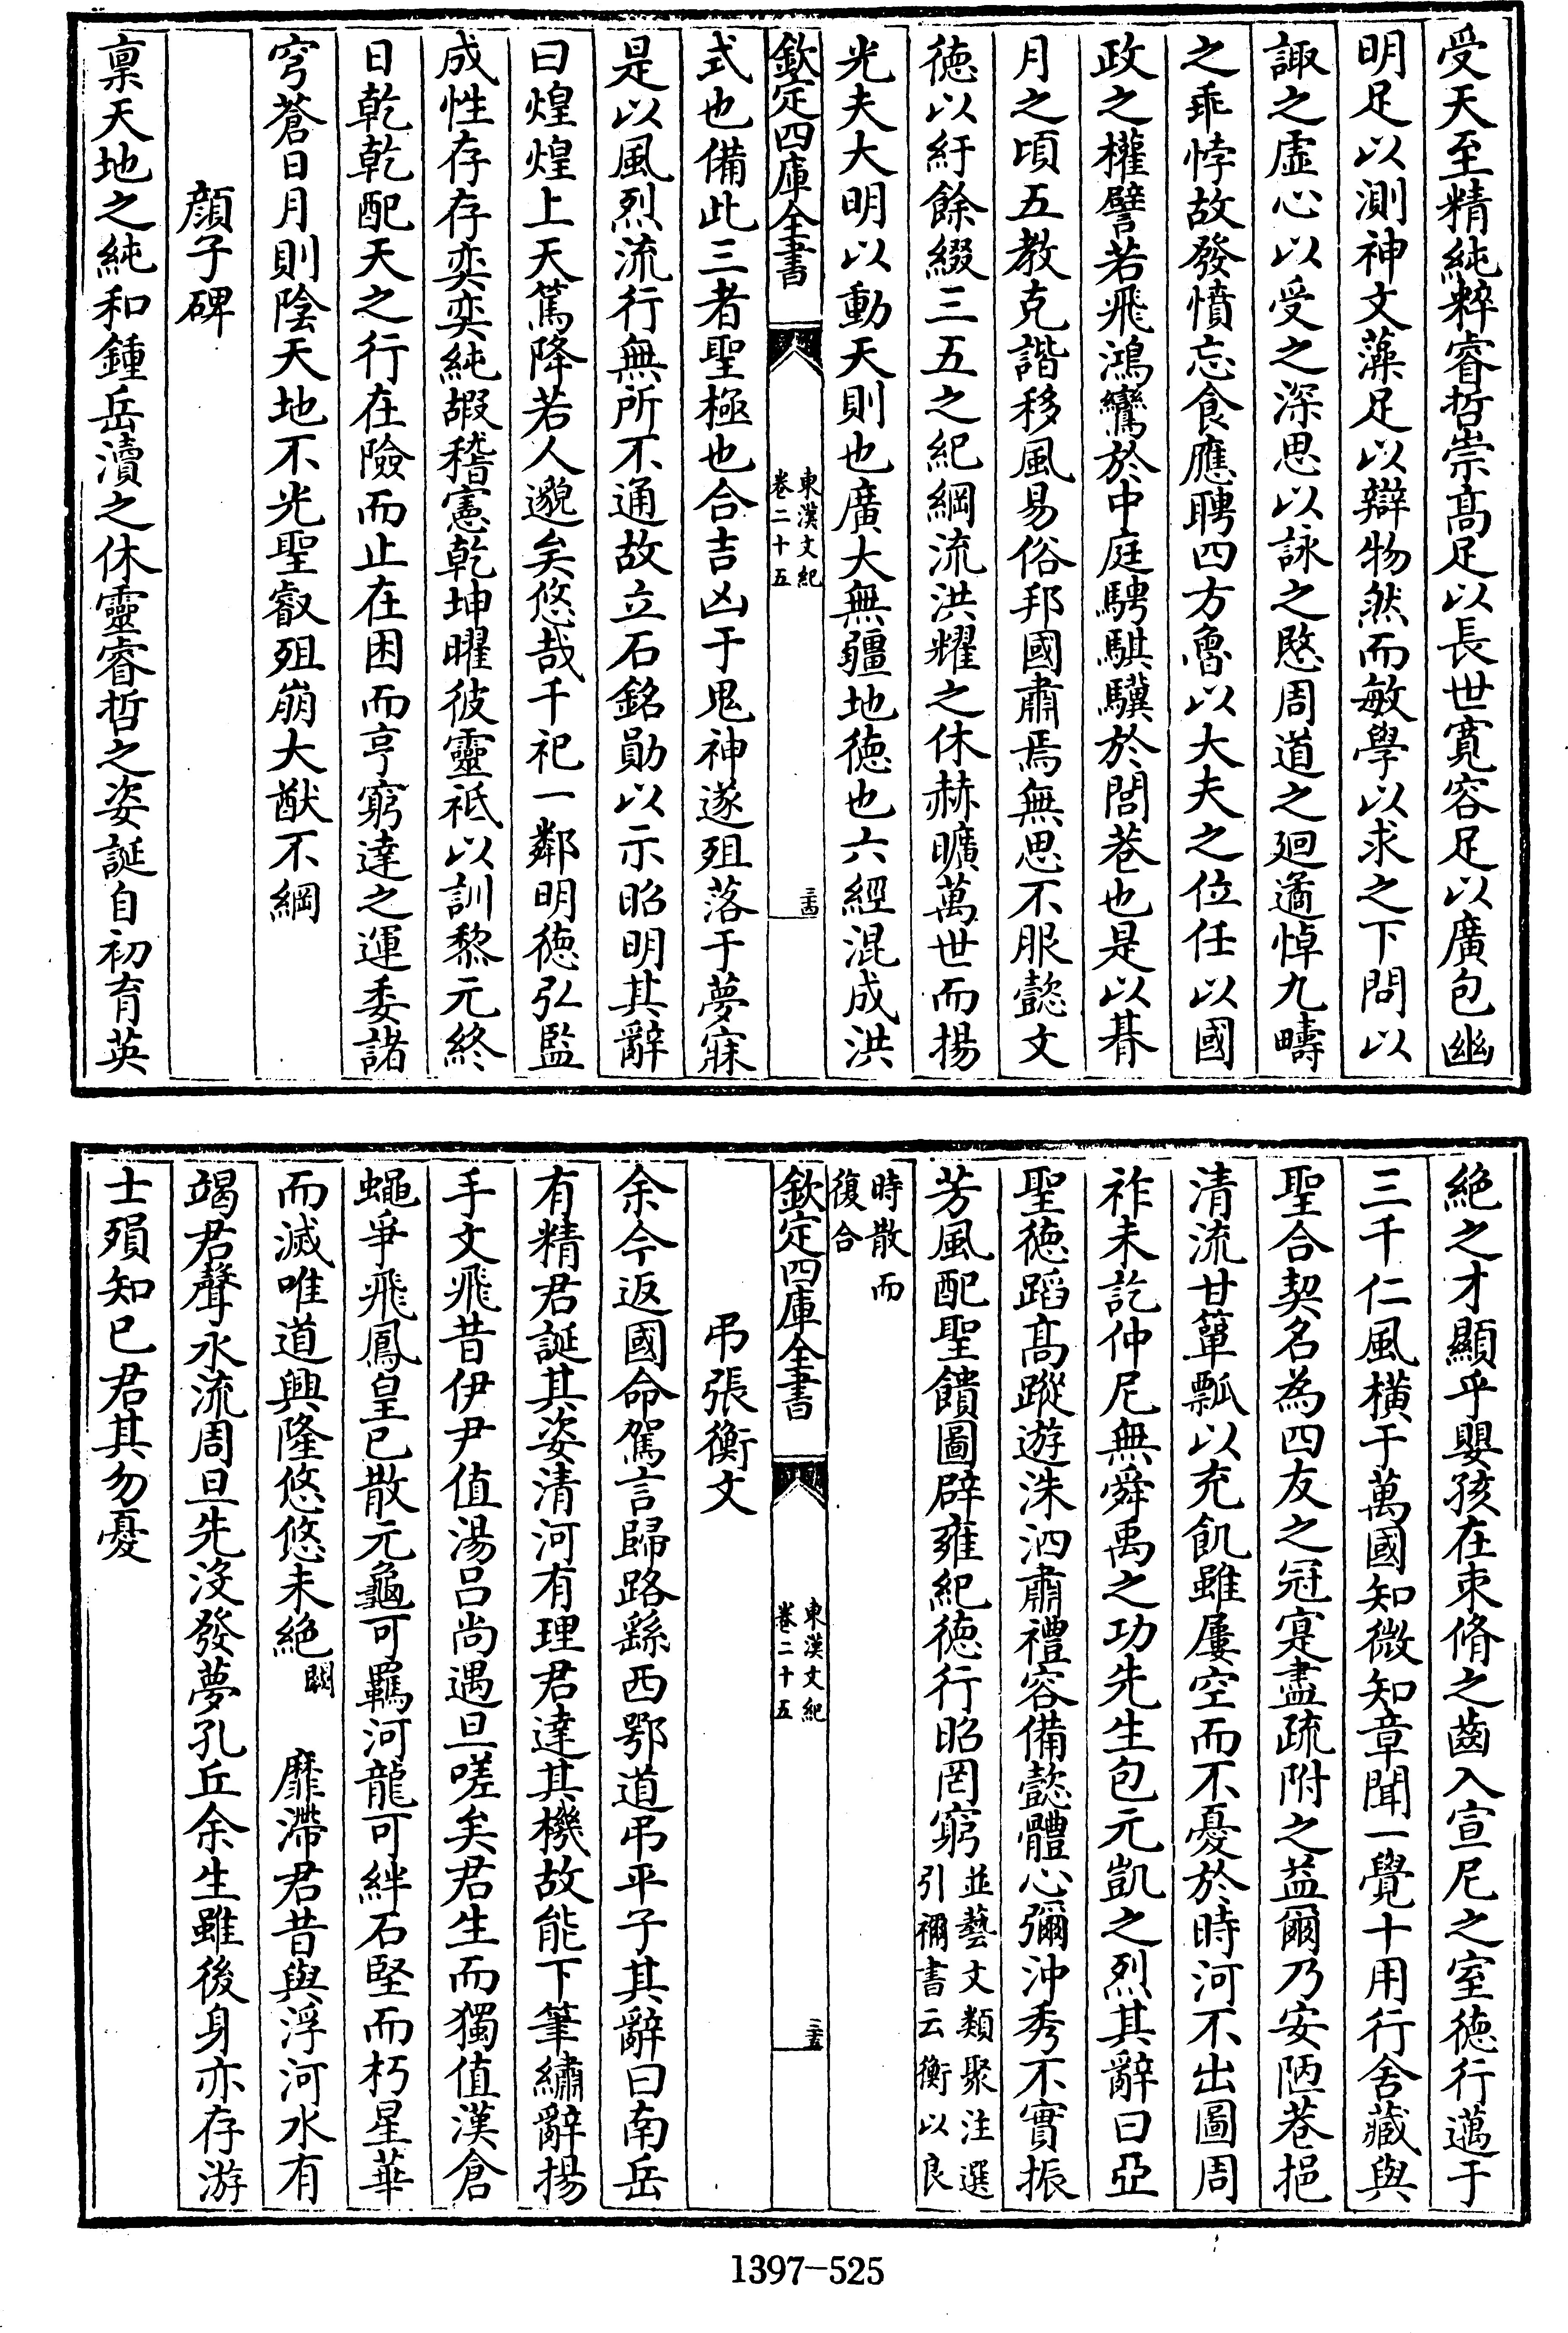 受天至精純粹睿哲崇髙足以長世寛容足以廣包幽
明足以測神文藻足以辯物然而敏學以求之下問以
諏之虚心以受之深思以詠之愍周道之廻遹悼九疇
之乖悖故發憤忘食應聘四方魯以大夫之位任以國
政之權譬若飛鴻鸞於中庭騁騏驥於閭巷也是以朞
月之頃五教克諧移風易俗邦國肅焉無思不服懿文
徳以紆餘綴三五之紀綱流洪耀之休赫曠萬世而揚
光夫大明以動天則也廣大無疆地徳也六經混成洪
欽定四庫全書
東漢文紀
卷二十五
三十四
式也備此三者聖極也合吉凶于鬼神遂殂落于夢寐
是以風烈流行無所不通故立石銘勛以示昭明其辭
曰煌煌上天篤降若人邈矣悠哉千祀一鄰明徳弘監
成性存存奕奕純嘏稽憲乾坤曜彼靈祗以訓黎元終
日乾乾配天之行在險而止在困而亨窮達之運委諸
穹蒼日月則陰天地不光聖叡殂崩大猷不綱
顔子碑
禀天地之純和鍾岳瀆之休靈睿哲之姿誕自初育英
絶之才顯乎嬰孩在朿脩之齒入宣尼之室徳行邁于
三千仁風横于萬國知微知章聞一覺十用行舍藏與
聖合契名為四友之冠寔盡疏附之益爾乃安陋巷挹
清流甘簞瓢以充飢雖屢空而不憂於時河不出圖周
祚未訖仲尼無舜禹之功先生包元凱之烈其辭曰亞
聖徳蹈髙蹤遊洙泗肅禮容備懿體心彌沖秀不實振
芳風配聖饋圖辟雍紀徳行昭罔窮
並藝文類聚注選
引禰書云衡以良
時散而
復合
欽定四庫全書
東漢文紀
卷二十五
三十五
弔張衡文
余今返國命駕言歸路繇西鄂道弔平子其辭曰南岳
有精君誕其姿清河有理君達其機故能下筆繡辭揚
手文飛昔伊尹值湯吕尚遇旦嗟矣君生而獨值漢倉
蠅爭飛鳳皇已散元龜可羈河龍可絆石堅而朽星華
而滅唯道興隆悠悠未絶
闕
靡滯君昔與浮河水有
竭君聲永流周旦先没發夢孔丘余生雖後身亦存游
士殞知已君其勿憂
1397-525